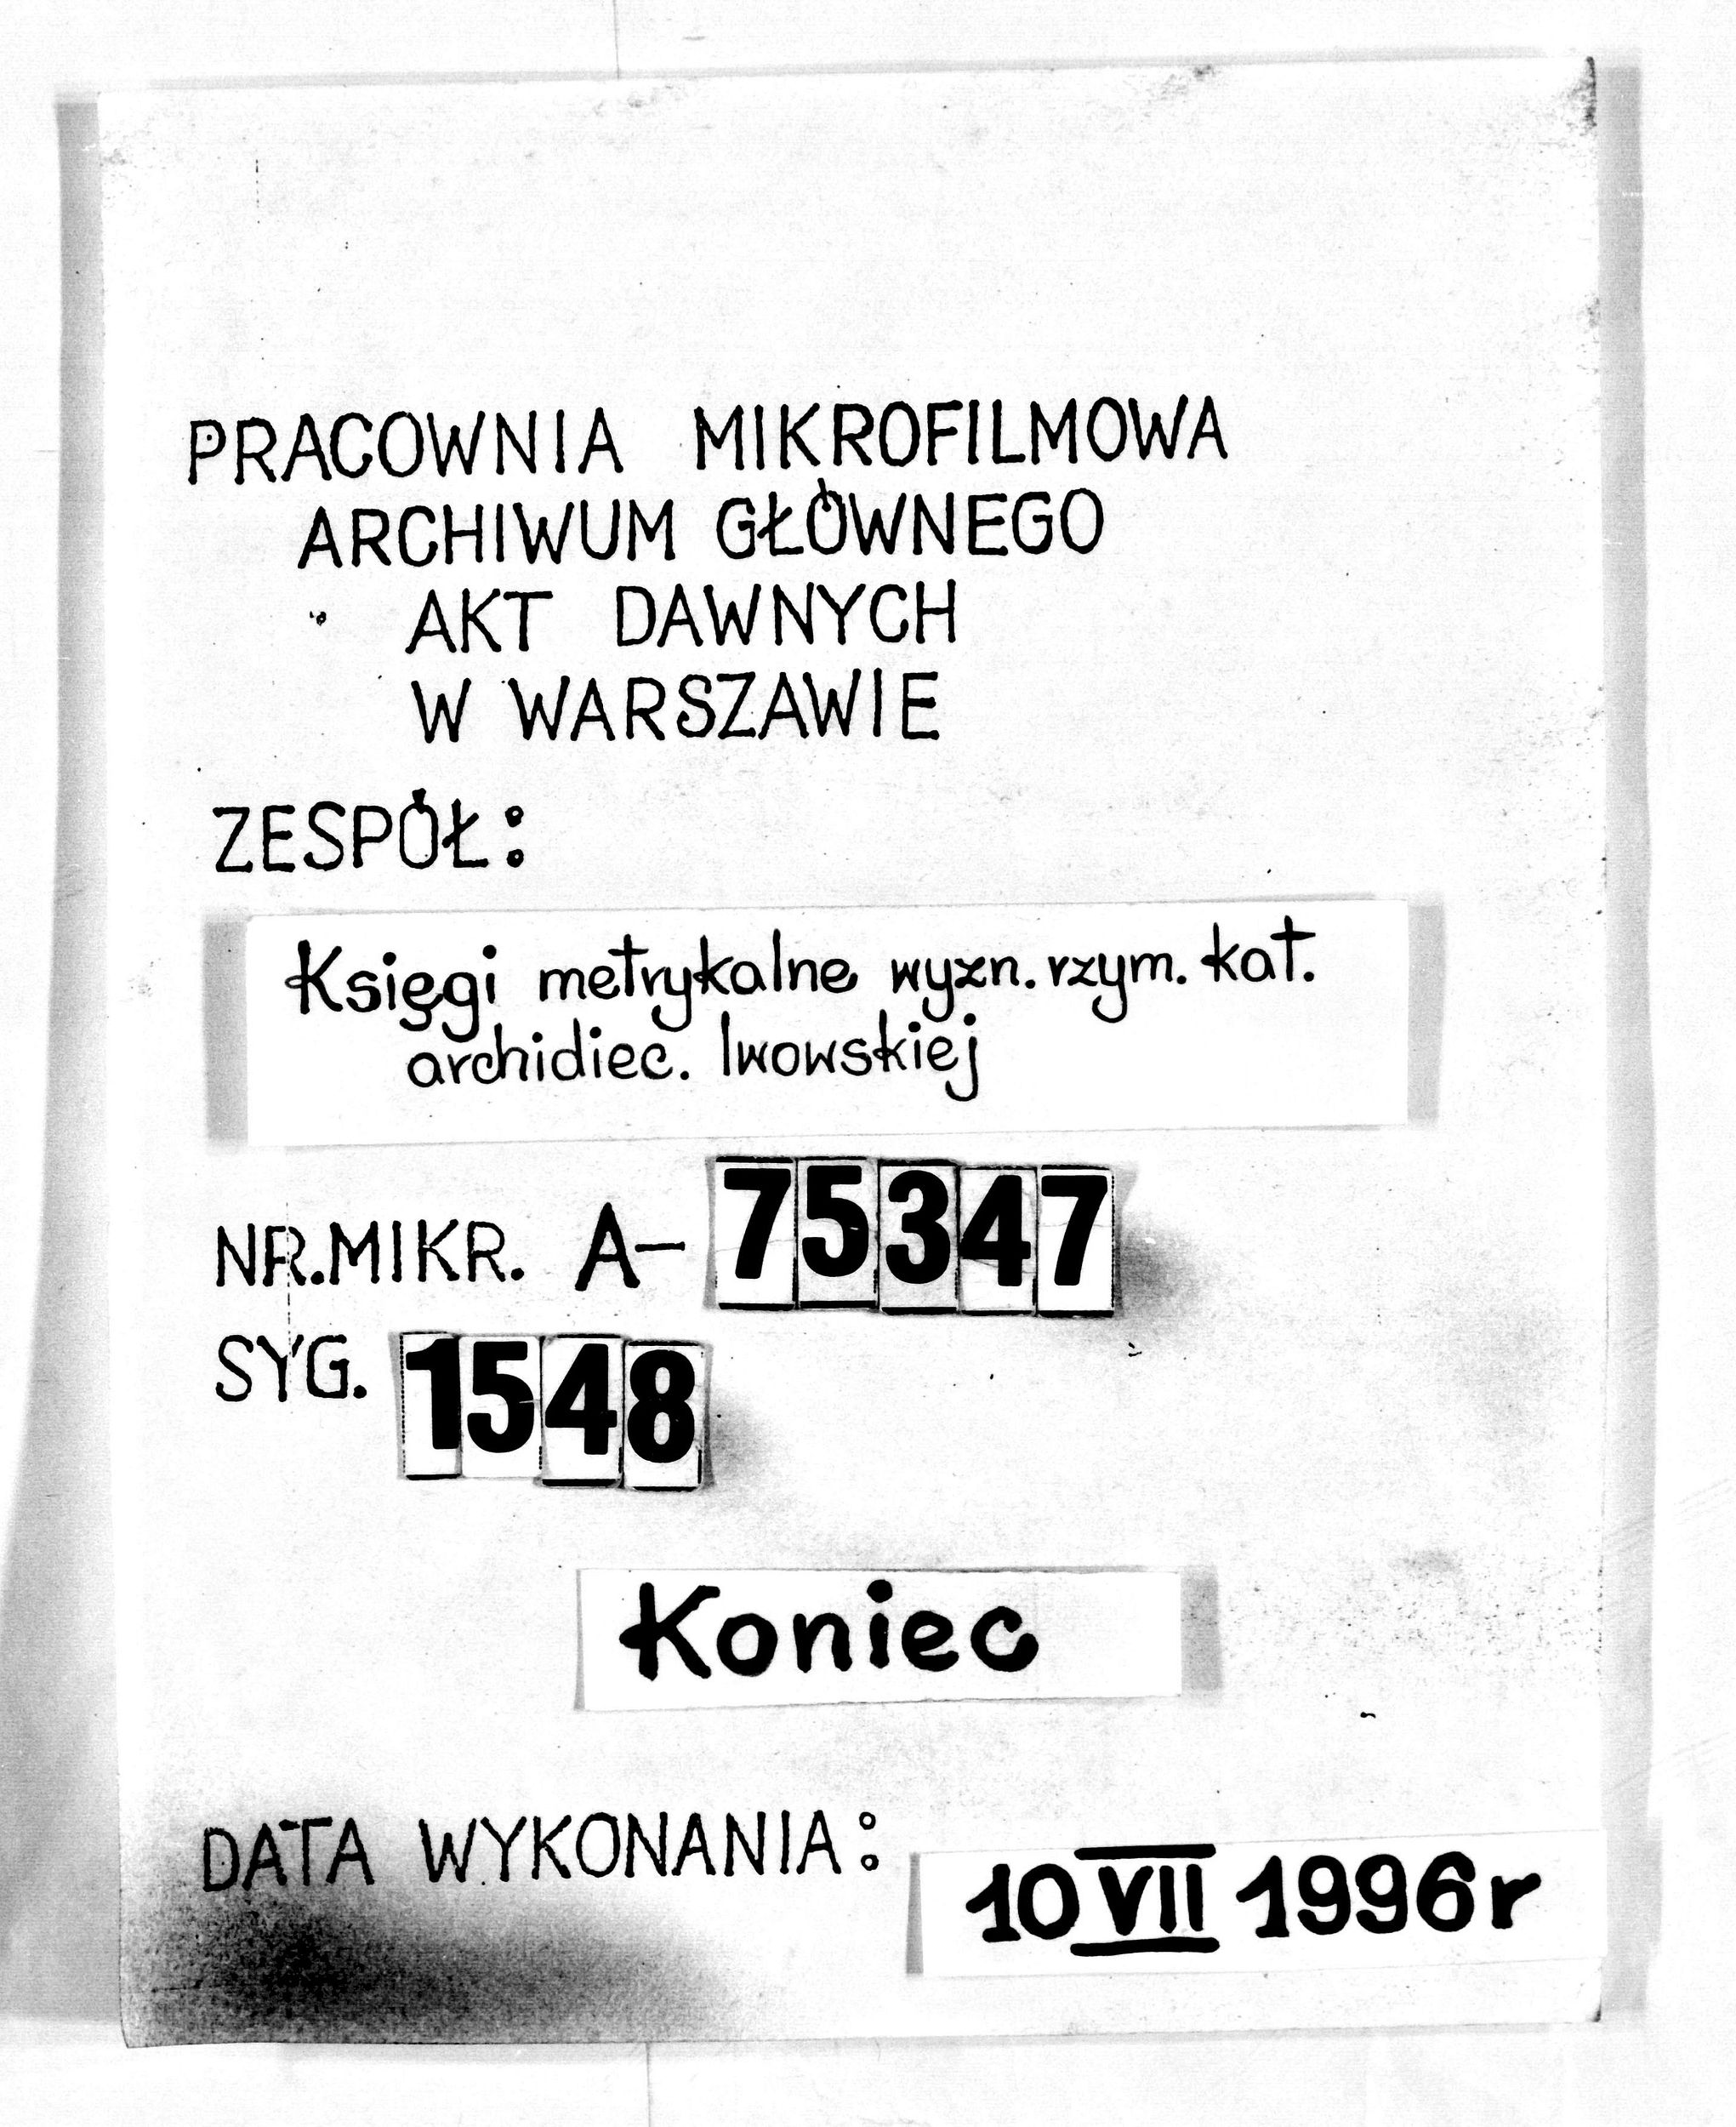 PRACOWNIA MIKROFILMOWA
ARCHIWUM GŁÓWNEGO
AKT DAWNYCH
W WARSZAWIE
ZESPÓŁ:
Księgi metrykalne wyzn. rzym. kat.
archidiec. lwowskiej
NR.MIKR. A- 75347
SYG. 1548
Koniec
DATA WYKONANIA: 10 VII 1996 r